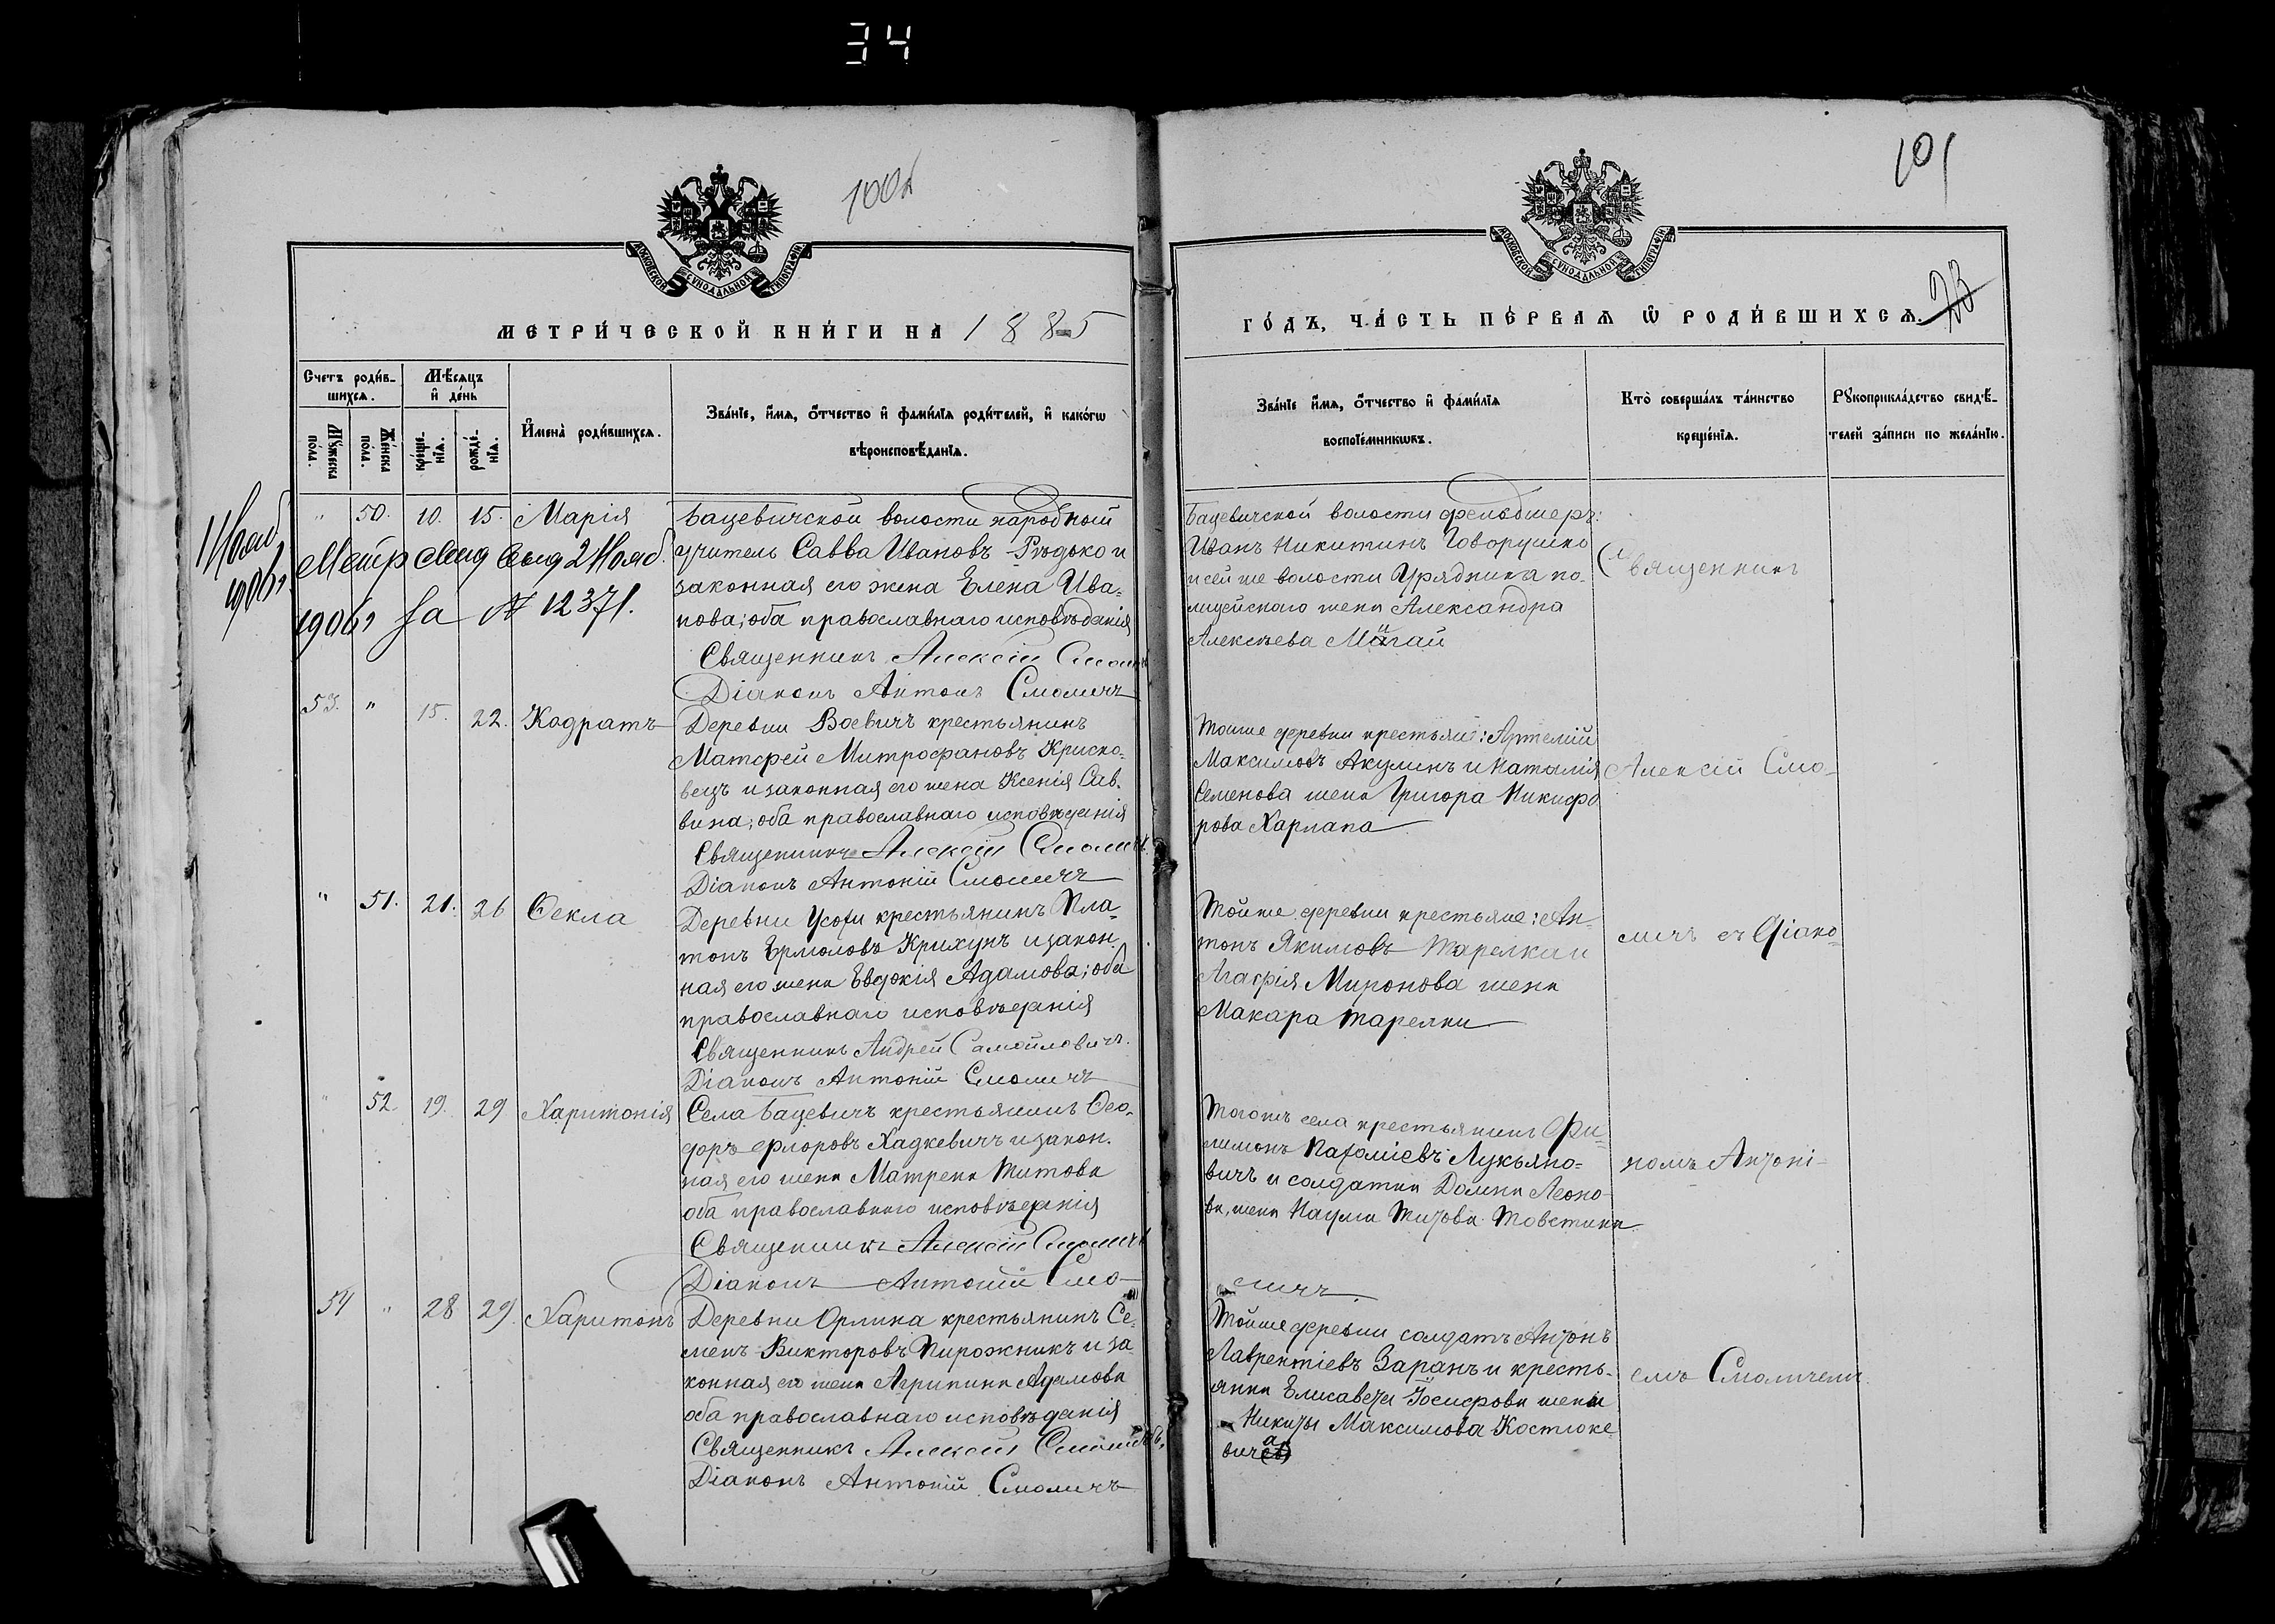 34
100
101
23
МОСКОВСКОЙ СѴНОДАЛЬНОЙ ТИПОГРАФІИ
МОСКОВСКОЙ СѴНОДАЛЬНОЙ ТИПОГРАФІИ
МЕТРИ́ЧЕСКОЙ КНИ́ГИ НА 1885
ГО́ДЪ, ЧА́СТЬ ПЕ́РВАѦ Ѽ РОДИ́ВШИХСѦ.
Счетъ роди́в-
шихсѧ.
Мѣ́сѧцъ
и҆ де́нь
Му́жеска
пол.
Же́нска
пол.
креще́-
нїѧ.
рожде́-
нїѧ.
И҆мена̀ роди́вшихсѧ.
Зва́нїе, и҆́мѧ, ѻ҆́тчество и҆ фами́лїѧ роди́телей, и҆ како́гѡ
вѣроисповѣ́данїѧ.
Зва́нїе и҆́мѧ, ѻ҆́тчество и҆ фами́лїѧ
воспоїе́мникѡвъ.
Кто̀ соверша́лъ та́инство
креще́нїѧ.
Рꙋкоприкла́дство свидѣ́-
телей за́писи по жела́нїю.
" 50. 10. 15. Марія
1 Нояб.
1906 г.
Метр свид выд 2 Нояб.
1906 г за № 12371.
Бацевичской волости народный
учитель Савва Ивановъ Рѣдько и
законная его жена Елена Ива-
нова; оба православнаго исповѣданія
Священникъ Алексій Смолич
Діаконъ Антоній Смоличъ
Бацевичской волости фельдшеръ:
Иванъ Никитинъ Говорушко
и сей же волости Урядника по-
лицейскаго жена Александра
Алексѣева Мигай
Священникъ
53. " 15. 22. Кадратъ
Деревни Воевичъ крестьянинъ
Матфей Митрофановъ Криско-
вецъ и законная его жена Ксенія Сав-
вина; оба православнаго исповѣданія
Священникъ Алексій Смоличъ
Діаконъ Антоній Смоличъ
Тойже деревни крестьяне: Артемій
Максимовъ Акулинъ и Наталія
Семенова жена Григора Никифо
рова Харлапа
Алексій Смо-
" 51. 21. 26 Ѳекла
Деревни Усохи крестьянинъ Пла-
тонъ Ермоловъ Крихунъ и закон
ная его жена Евдокія Адамова; оба
православнаго исповѣданія
Священникъ Андрей Самойловичъ.
Діаконъ Антоній Смоличъ
Тойже деревни крестьяне: Ан-
тонъ Якимовъ Тарелка и
Агафія Миронова жена
Макара Тарелки
личъ съ Діако-
" 52. 19. 29 Харитонія
Села Бацевичъ крестьянинъ Ѳео-
доръ Флоровъ Хадкевичъ и закон.
ная его жена Матрена Титова
оба православнаго исповѣданія
Священникъ Алексій Смоличъ
Діаконъ Антоній Смо-
личъ.
Тогожъ села крестьянинъ Фи-
лимонъ Пахоміевъ Лукьяно-
вичъ и солдатка Домна Леоно-
ва, жена Наума Титова Товстика
номъ Антоні-
54 " 28 29. Харитонъ
Деревни Орлина крестьянинъ Се-
менъ Викторовъ Пирожникъ и за
конная его жена Агрипина Адамова
оба православнаго исповѣданія
Священникъ Алексій Смоличъ
Діаконъ Антоній Смоличъ
Тойже деревни солдатъ Антонъ
Лаврентіевъ Заранъ и кресть-
янка Елисавета Іосифова жена
Никиты Максимова Костюке
вича
емъ Смоличемъ.